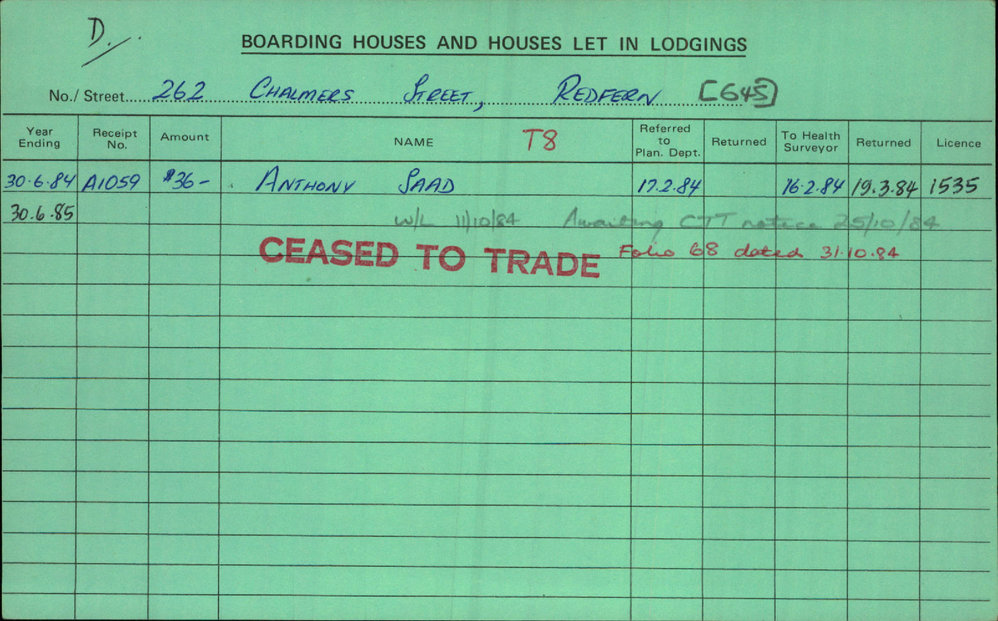 D.
BOARDING HOUSES AND HOUSES LET IN LODGINGS
No./ Street 262 CHALMERS STREET, REDFERN [645]
Year Ending Receipt No. Amount NAME T8 Referred to Plan. Dept. Returned To Health Surveyor Returned Licence
30.6.84 A1059 $36- ANTHONY SAAD 17.2.84 16.2.84 19.3.84 1535
30.6.85 W/L 11/10/84 Awaiting CTT notice 25/10/84
CEASED TO TRADE Folio 68 dated 31.10.84